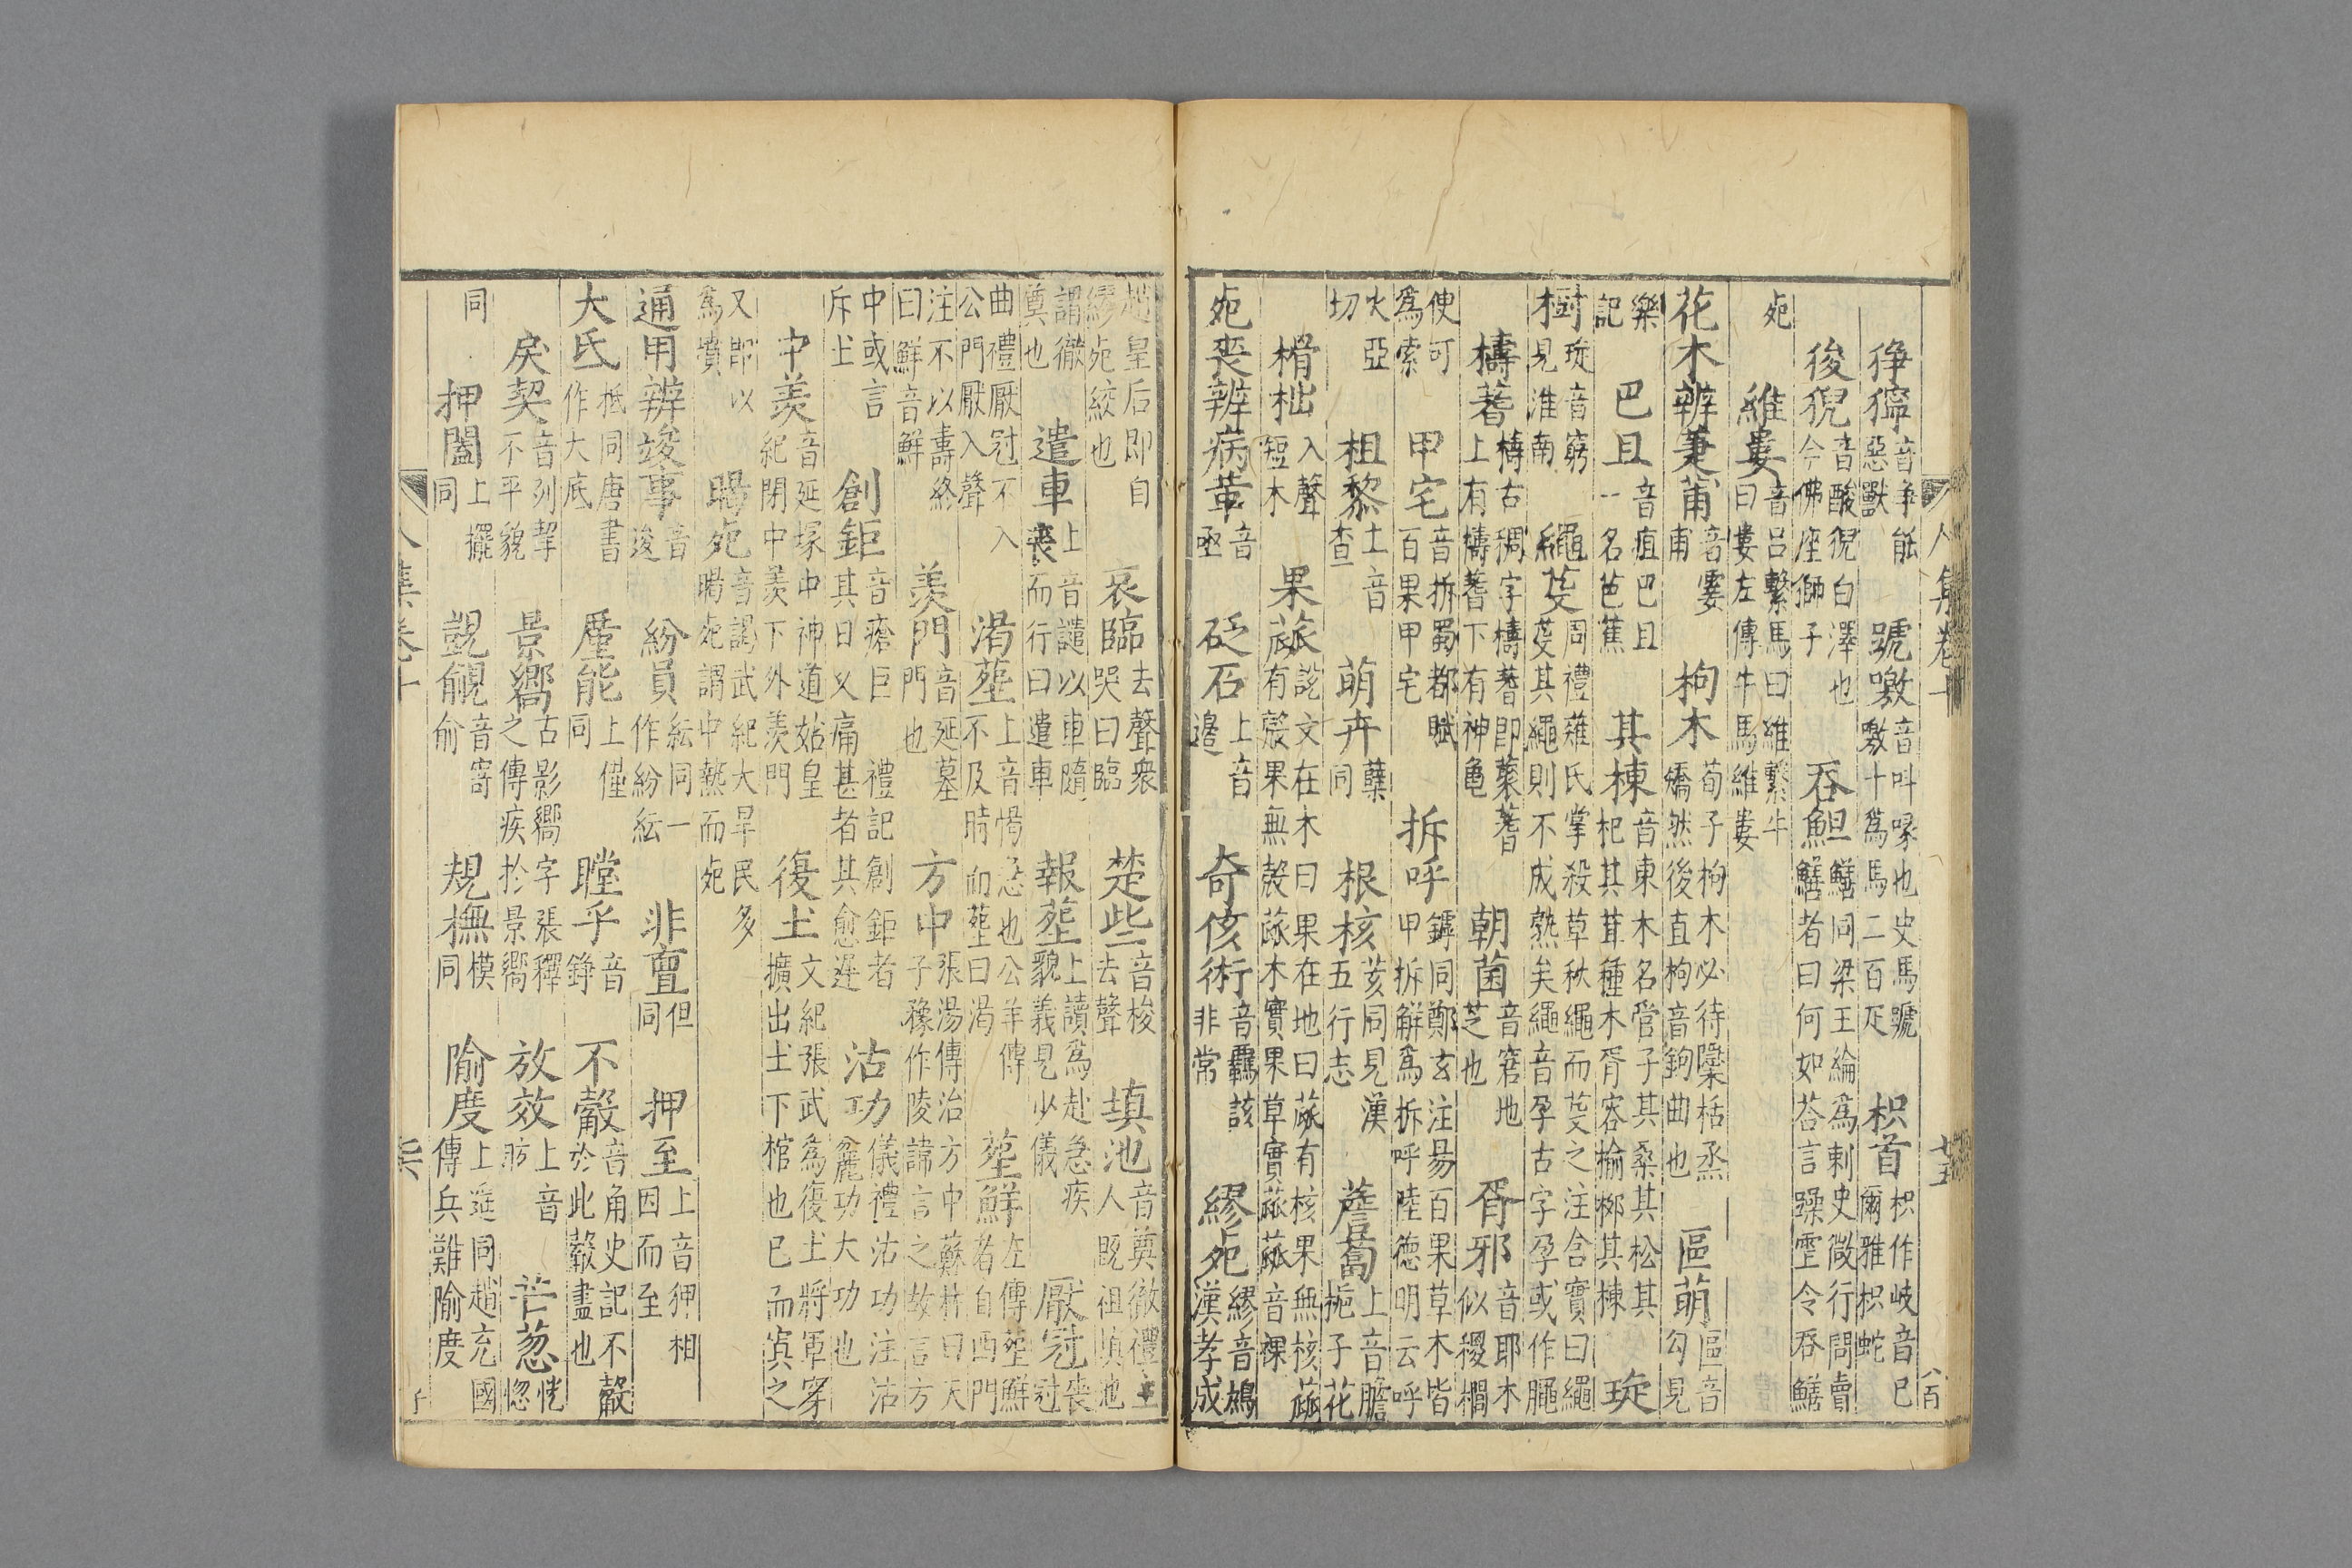 猙獰音爭能惡獸　號噭音叫喙也史馬蹏噭十爲馬二百疋　枳首枳作岐音已爾雅枳蛇
後猊音酸猊白澤也今佛座獅子　吞䱇鱔同梁王綸爲刺史微行問賣鱔者曰何如荅言躁䨓令吞鱔
𣦸　維婁音呂繫馬曰維繫牛曰婁左傳牛馬維婁
花木辨萐莆音霎甫　枸木荀子枸木必待檃栝烝矯然後直枸音鉤曲也　區萌區音勾見
樂記　巴且音疽巴且一名芭蕉　其棟音東木名管子其桑其松其杞其茸種木胥容榆桞其棟　琁
樹琁音窮見淮南　繩芟周禮薙氏掌殺草秋繩而芟之注含實曰繩芟其繩則不成熟矣繩音孕古字孕或作𦢸
檮蓍檮古稠字檮蓍即藂蓍上有檮蓍下有神龜　朝菌音窘地芝也　胥邪音耶木似椶櫚
使可爲索　甲宅音拆蜀都賦百果甲宅　拆呼罅同鄭玄注昜百果草木皆甲拆解爲拆呼陸德明云呼
火亞切　柤黎土音查　萌卉蘖同　根核荄同見漢五行志　薝蔔上音膽梔子花
榾柮入聲短木　果蓏說文在木曰果在地曰蓏有核果無核蓏有殼果無殼蓏木實果草實蓏蓏音裸
𣦸喪辨病革音亟　砭石上音邊　奇侅術音羈該非常　繆𣦸繆音鴆漢孝成
趙皇后即自繆𣦸絞也　哀臨去聲衆哭曰臨　楚些音梭去聲　填池音奠徹禮士人旣祖填池
謂徹奠也　遣車上音譴以車隨喪而行曰遣車　報塟上讀爲赴急疾䝿義見少儀　厭冠喪冠
曲禮厭冠不入公門厭入聲　渴塟上音愒急也公羊傳不及時而塟曰渴　塟鮮左傳塟鮮者自西門
注不以壽終曰鮮音鮮　羨門音延墓門也　方中張湯傳治方中蘇林曰天子豫作陵諱言之故言方
中或言斥土　創鉅音瘡巨其日乂　禮記創鉅者痛甚者其愈遲　沽功儀禮沽功注沽麄功大功也
中羨音延塚中神道始皇紀閉中羨下外羨門　復土文紀張武爲復土將軍穿擴出土下棺也已而窴之
又即以爲墳　暍𣦸音謁武紀大旱民多暍𣦸謂中熱而𣦸
通用辨竣事音逡　紛員紜同一作紛紜　非亶但同　押至上音狎相因而至
大氐柢同唐書作大底　廑能上僅同　瞠乎音錚　不㲉音角史記不㲉於此㲉盡也
戾契音列挈不平貌　景嚮古影嚮字張釋之傳疾於景嚮　放效上音昉　芒惚恍惚
同　押闔上擺同　覬覦音寄俞　規橅模同　隃度上遥同趙充國傳兵難隃度